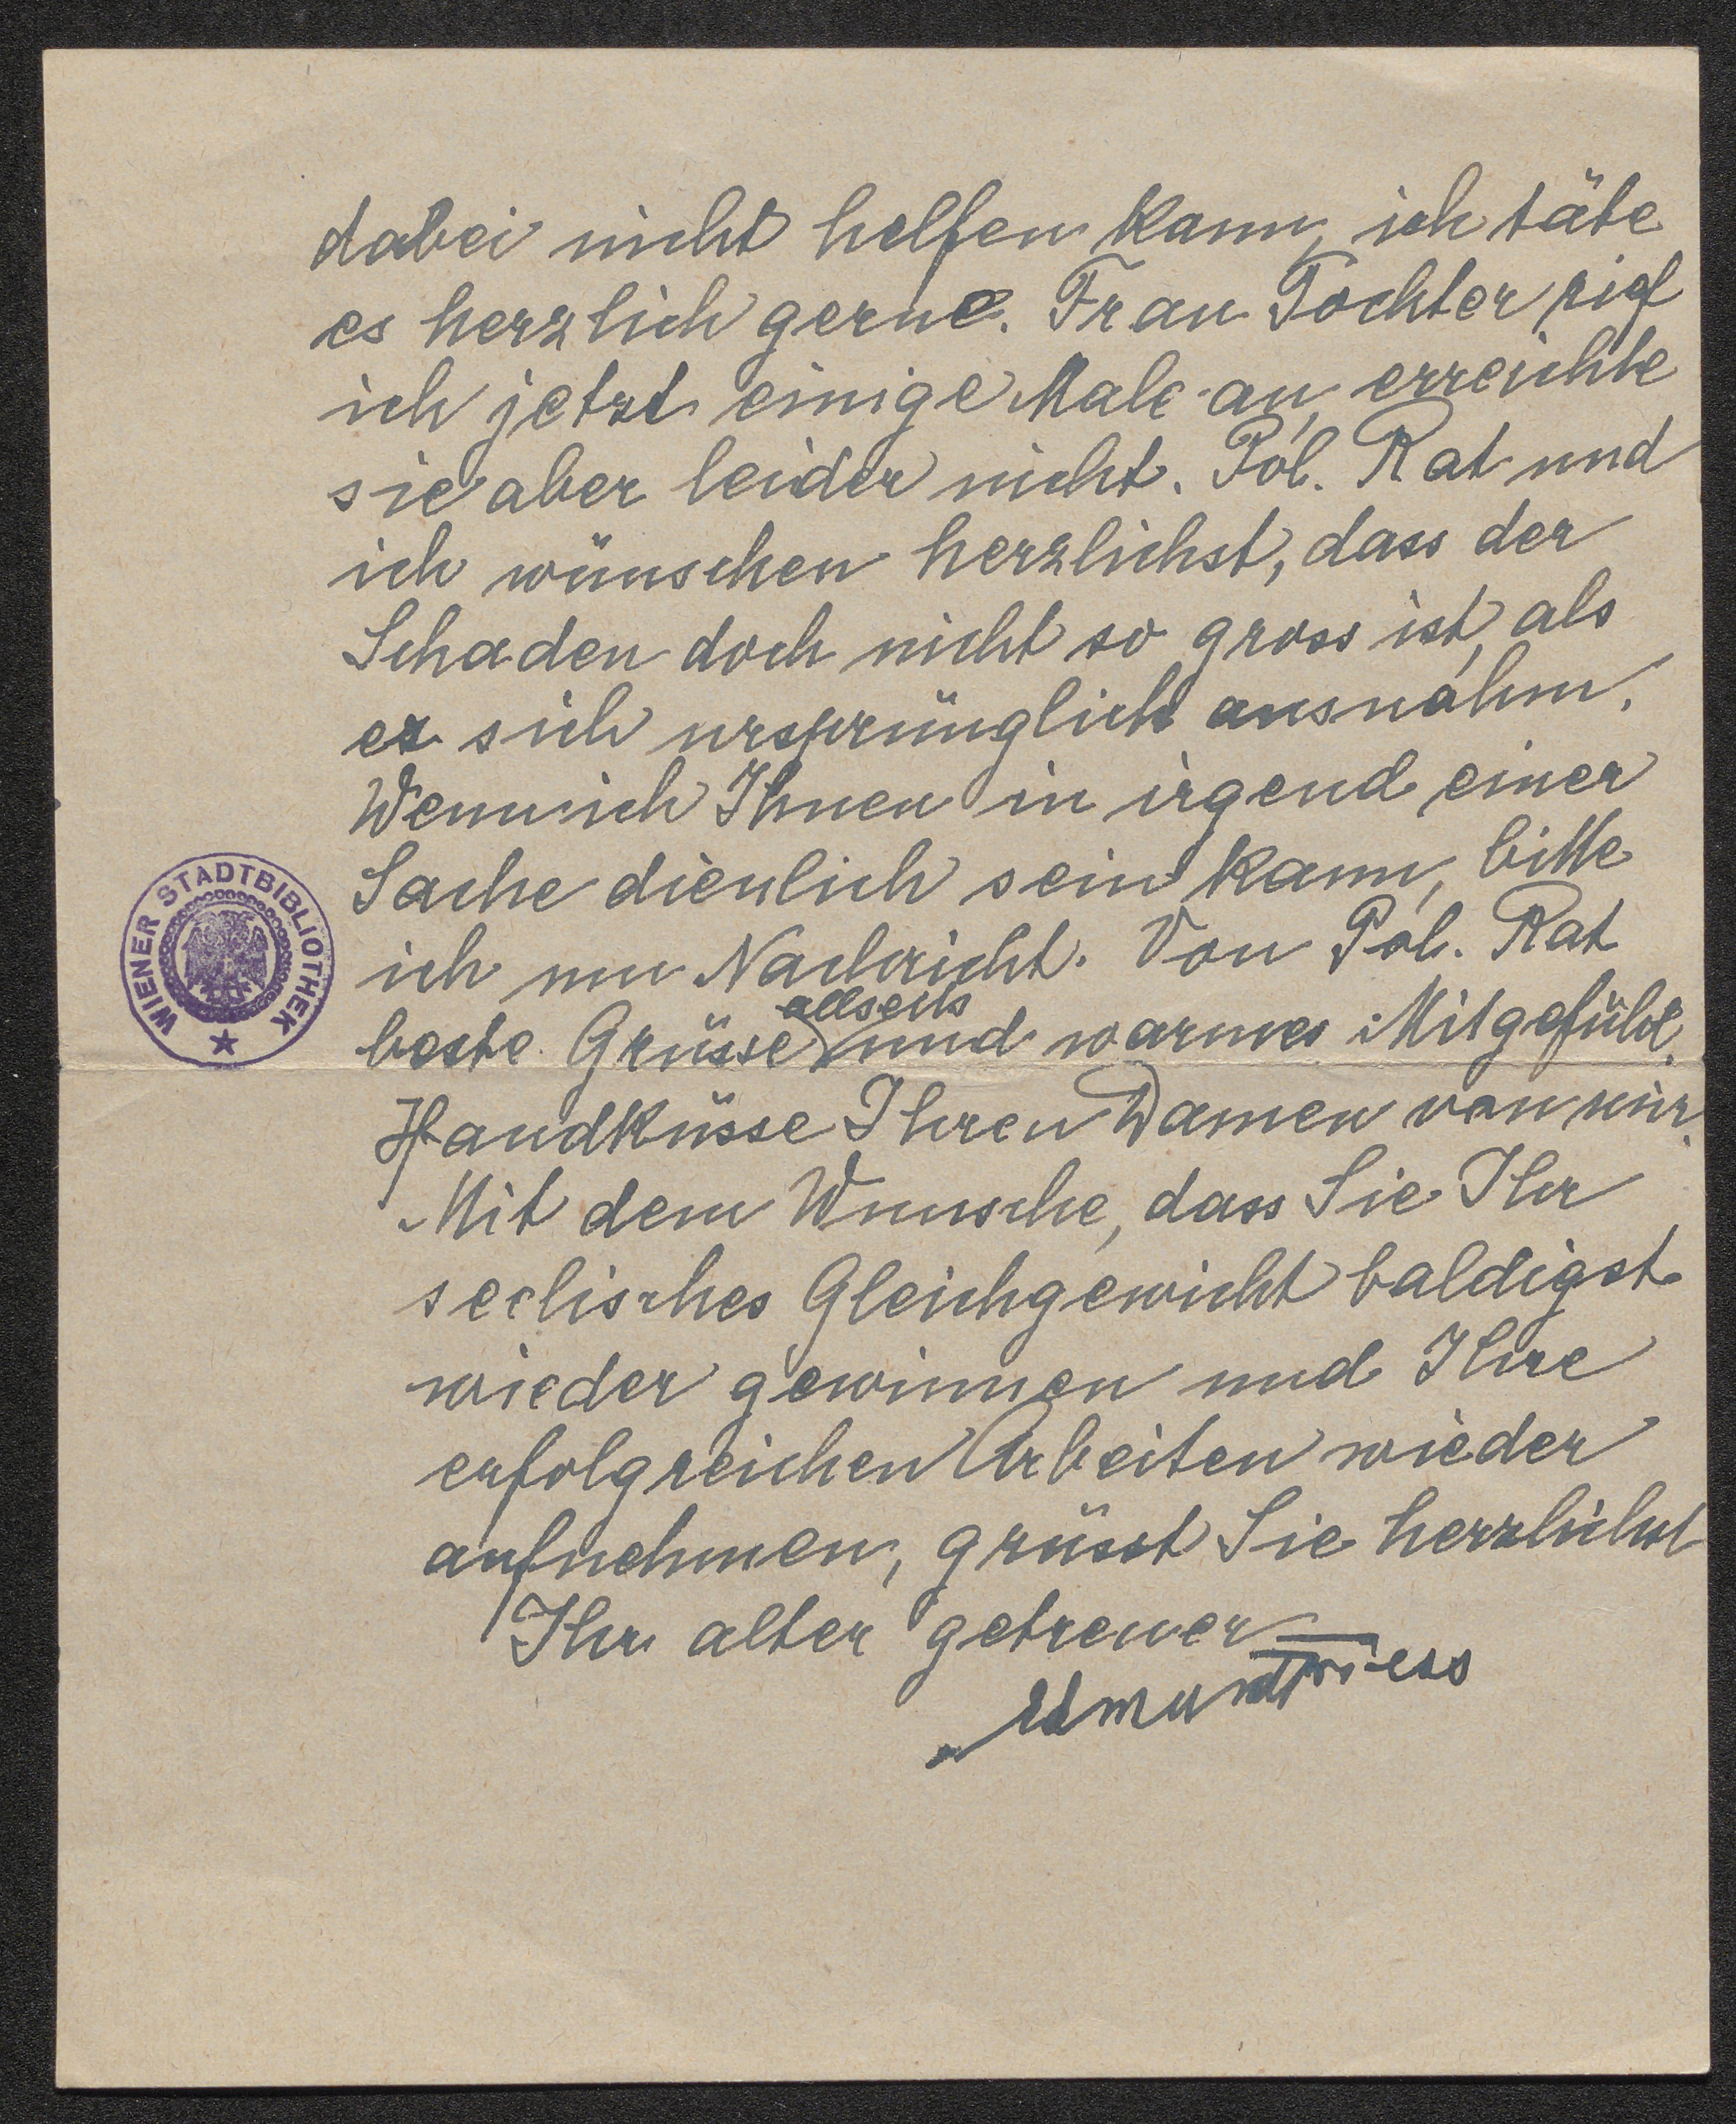 dabei nicht helfen kann, ich täte
es herzlich gerne. Frau Tochter rief
ich jetzt einige Male an, erreichte
sie aber leider nicht. Pol. Rat und
ich wünschen herzlichst, dass der
Schaden doch nicht so gross ist, als
er sich ursprünglich ausnahm.
Wenn ich Ihnen in irgend einer
Sache dienlich sein kann, bitte
ich um Nachricht. Von Pol. Rat
beste Grüsse allseits und warmes Mitgefühl.
Handküsse Ihren Damen von mir.
Mit dem Wunsche, dass Sie Ihr
seelisches Gleichgewicht baldigst
wieder gewinnen und Ihre
erfolgreichen Arbeiten wieder
aufnehmen, grüsst Sie herzlichst
Ihr alter getreuer
Edmund Friess
WIENER STADTBIBLIOTHEK